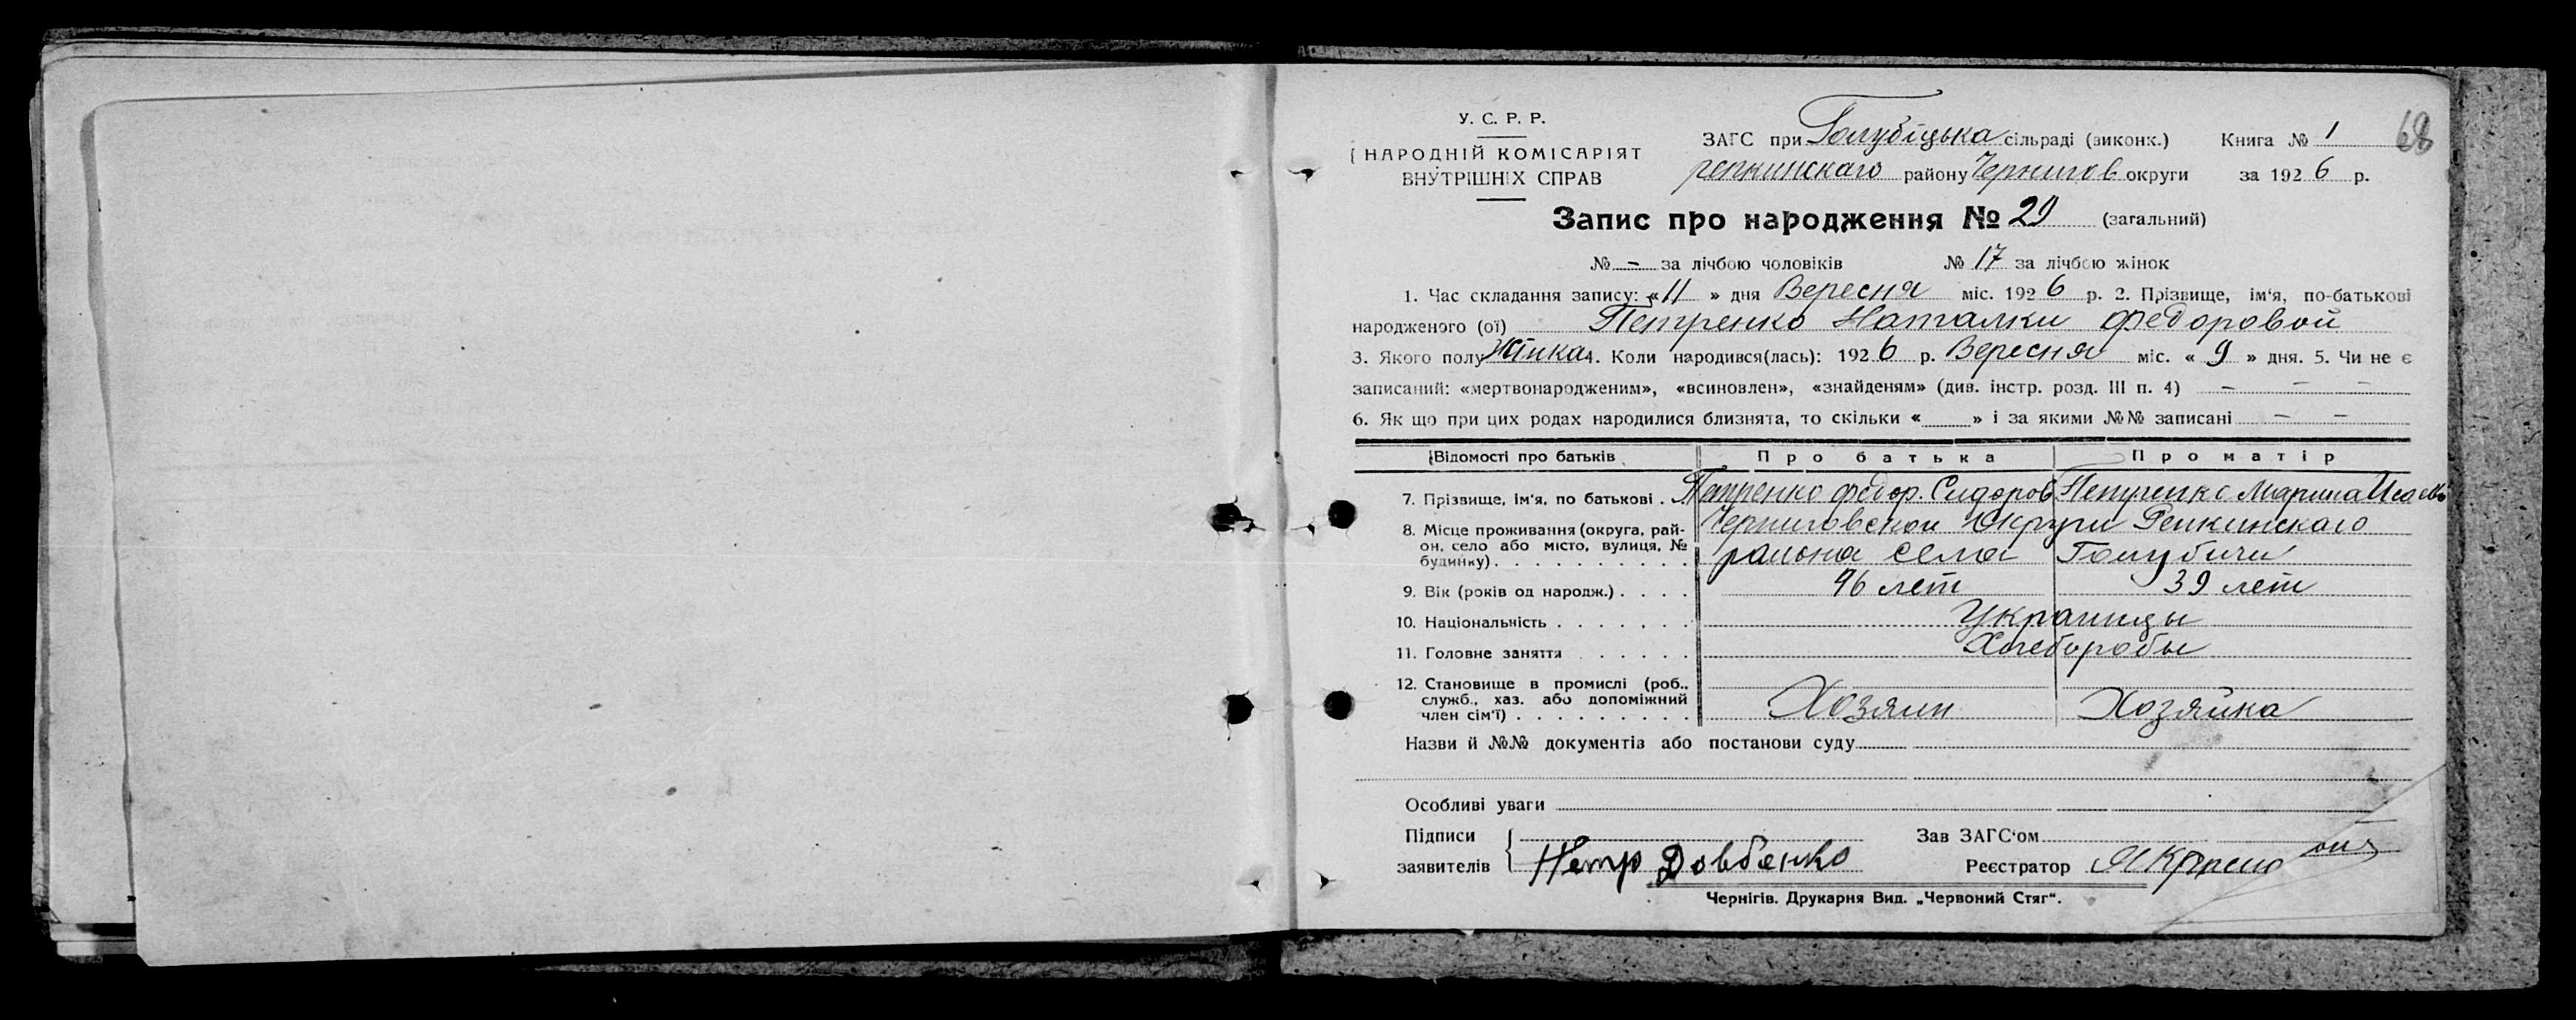 У. С. Р. Р.
НАРОДНІЙ КОМІСАРІЯТ
ВНУТРІШНІХ СПРАВ
ЗАГС при Голубіцька сільраді (виконк.) Книга № 1 68
репкинскаго району Чернигов округи за 1926 р.
Запис про народження № 29 (загальний)
№ - за лічбою чоловіків № 17 за лічбою жінок
1. Час складання запису: «11» дня Вересня міс. 1926 р. 2. Прізвище, ім'я, по-батькові
народженого (ої) Петренко Наталки Федоровой
3. Якого полу Жінка 4. Коли народився(лась): 1926 р. Вересня міс. «9» дня. 5. Чи не є
записаний: «мертвонародженим», «всиновлен», «знайденям» (див. інстр. розд. III п. 4) - - -
6. Як що при цих родах народилися близнята, то скільки «___» і за якими №№ записані - -
Відомості про батьків Про батька Про матір
7. Прізвище, ім'я, по батькові . Петренко Федор. Сидоров Петренко Марина
8. Місце проживання (округа, рай-
он, село або місто, вулиця, №
будинку) . . . . . . . . . .
Черниговской Округи Репкинскаго
района села Голубичи
9. Вік (років од народж.) . . . . 46 лет 39 лет
10. Національність . . . . . . . Украинцы
11. Головне заняття . . . . . . Хлеборобы
12. Становище в промислі (роб.,
служб., хаз. або допоміжний
член сім'ї) . . . . . . . . . Хозяин Хозяйка
Назви й №№ документів або постанови суду
Особливі уваги
Підписи
заявителів Петр Довбенко
Зав ЗАГС'ом
Реєстратор
Чернігів. Друкарня Вид. „Червоний Стяг".